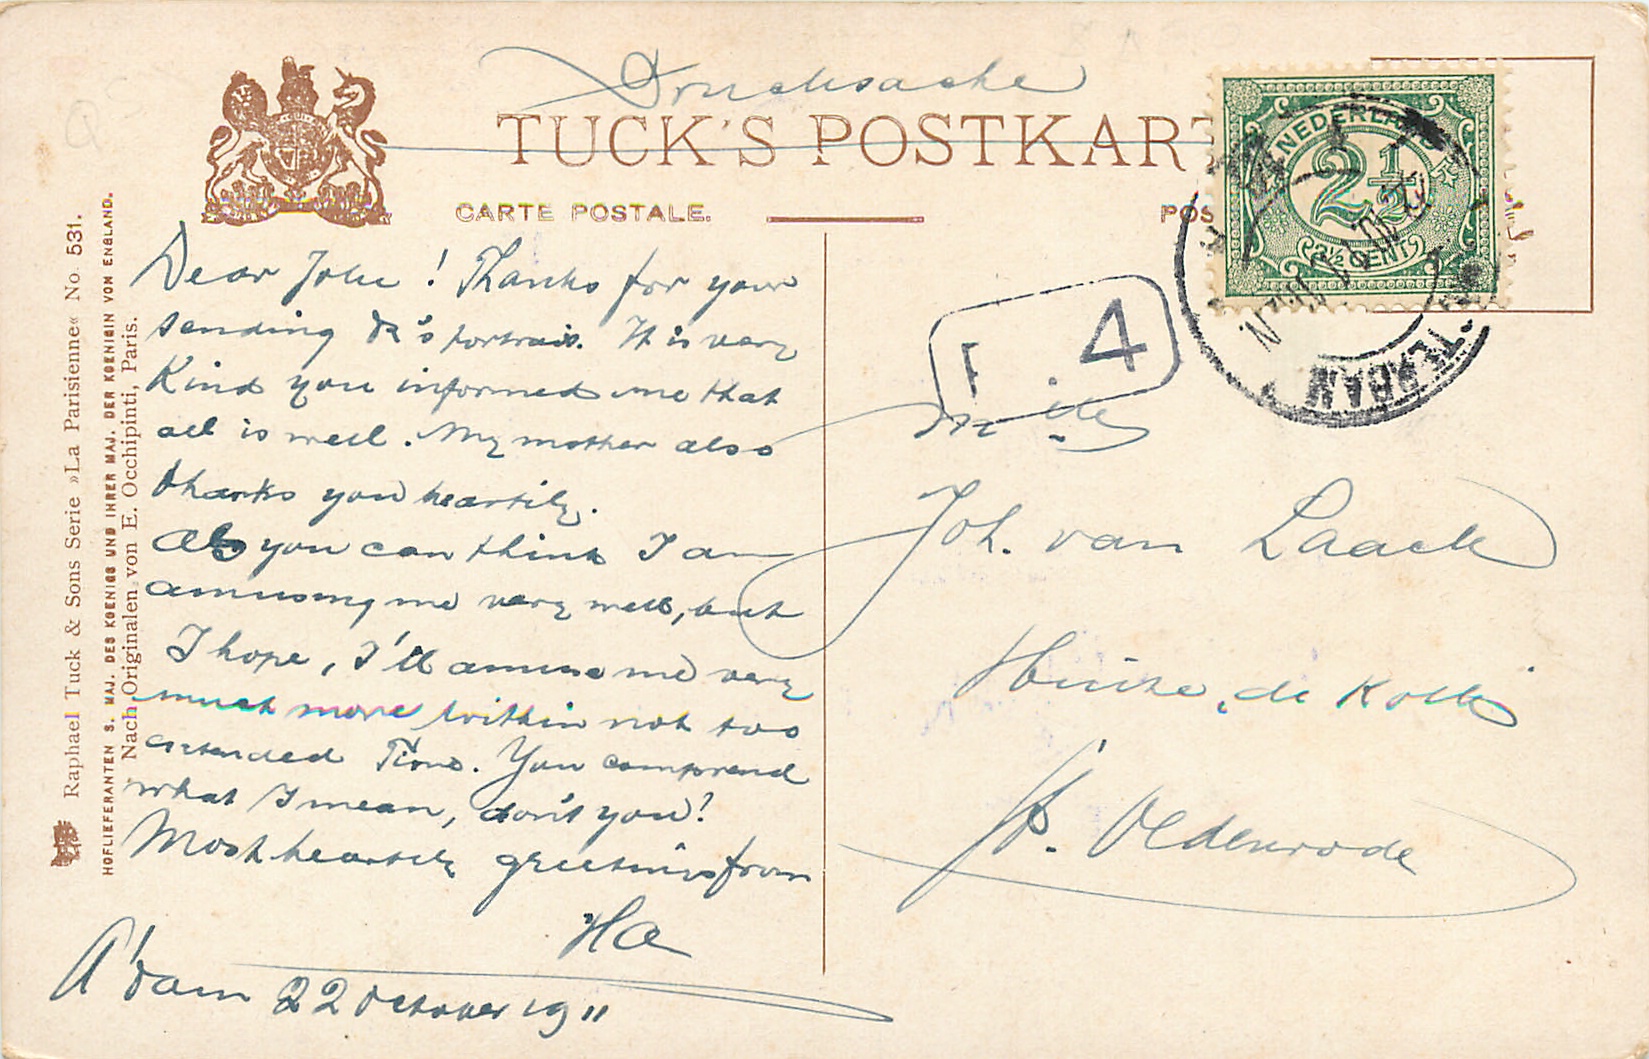 Drucksache
TUCK'S POSTKART
CARTE POSTALE.
POS
NEDERLAND
2½
2½ CENT
4
TERDAM
Dear John! Thanks for your
sending R's portrait. It is very
Kind you informed me that
all is well. My mother also
thanks you heartily.
As you can think I am
amusing me very well, but
I hope, I'll amuse me very
much more within not too
extended Time. You comprend
what I mean, don't you?
Most heartily greetings from
Ha
A'dam 22 October 1911
Joh. van Laack
Huize, de Kolk
St. Oedenrode
Raphael Tuck & Sons Serie »La Parisienne« No. 531.
HOFLIEFERANTEN S. MAJ. DES KOENIGS UND IHRER MAJ. DER KOENIGIN VON ENGLAND.
Nach Originalen von E. Occhipinti, Paris.